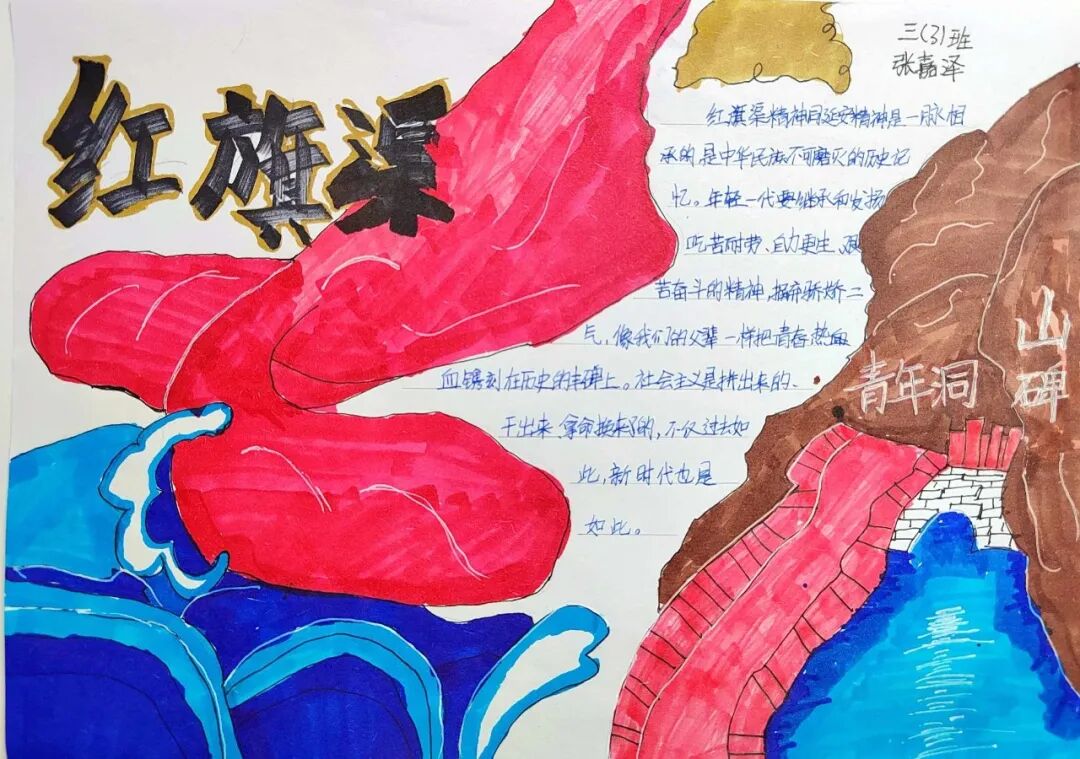 红旗渠
三(3)班
张嘉泽
红旗渠精神同延安精神是一脉相
承的,是中华民族不可磨灭的历史记
忆。年轻一代要继承和发扬
吃苦耐劳、自力更生、艰
苦奋斗的精神,摒弃骄娇二
气,像我们的父辈一样把青春热血
血镌刻在历史的丰碑上。社会主义是拼出来的、
干出来、拿命换来的,不仅过去如
此,新时代也是
如此。
山碑
青年洞